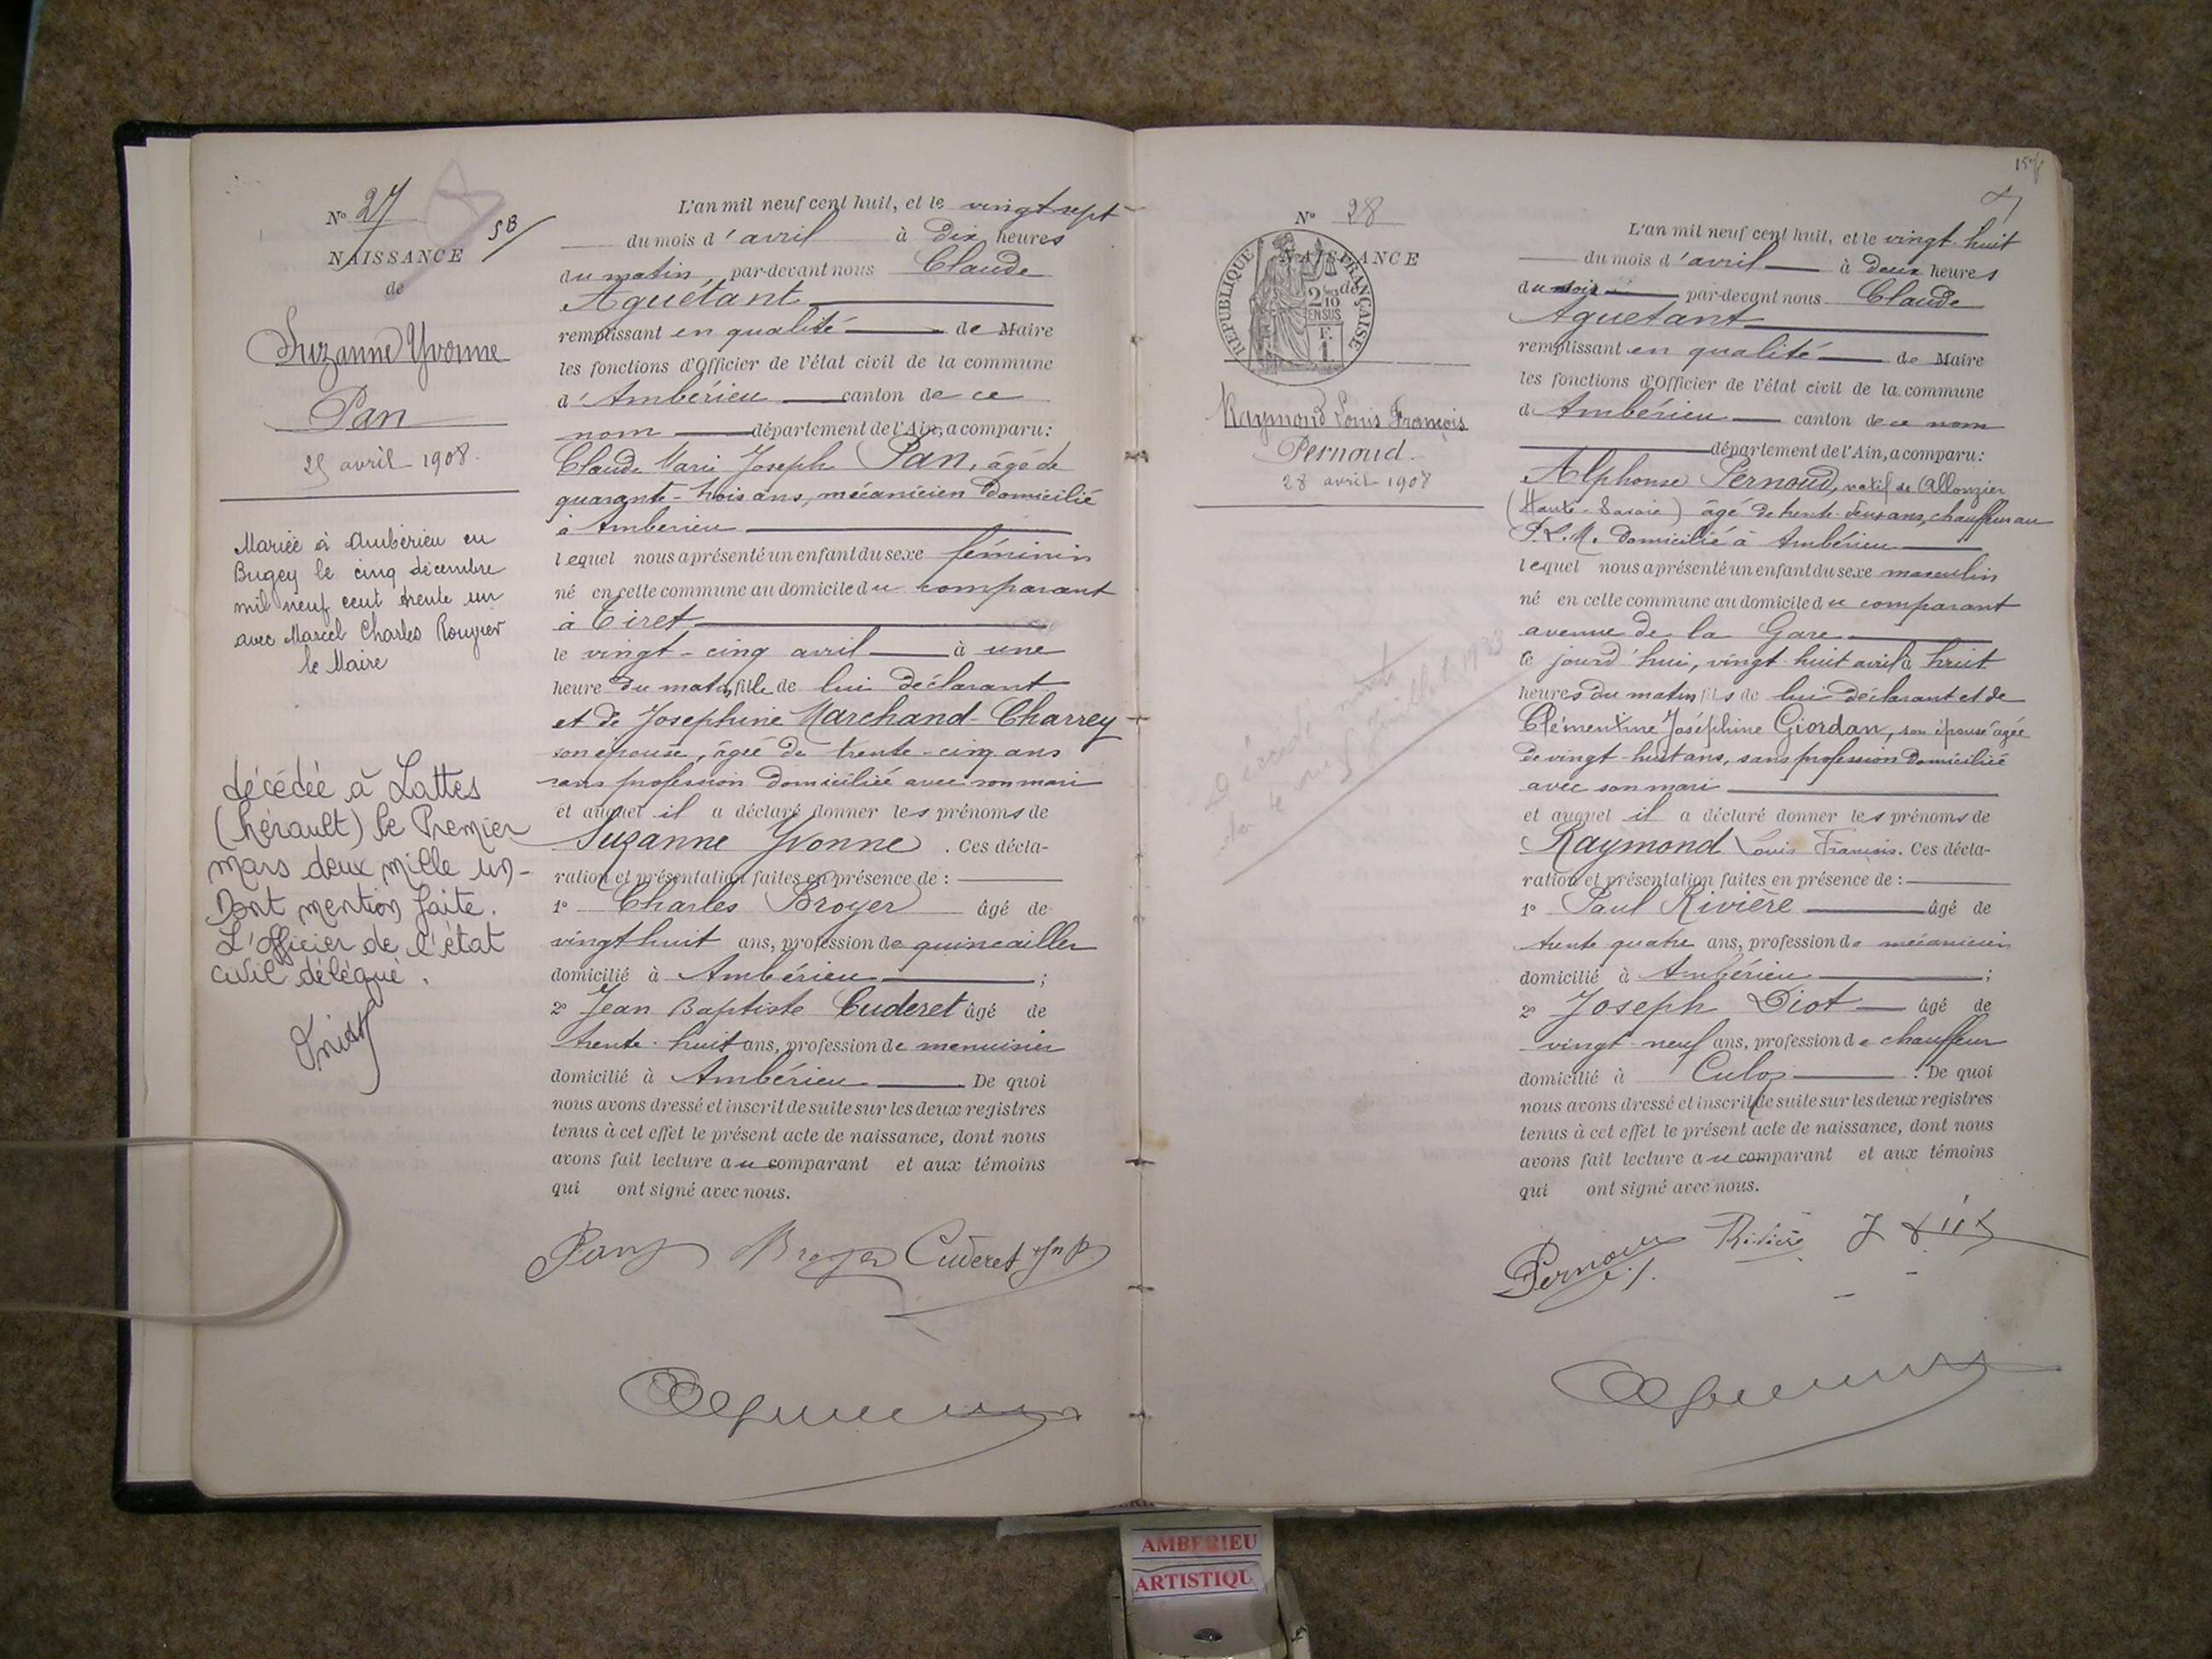 N° 27
5B
NAISSANCE
de
Suzanne Yvonne
Pan
25 avril 1908.
Mariée à Ambérieu en
Bugey le cinq décembre
mil neuf cent trente un
avec Marcel Charles Rougier
le Maire
décédée à Lattes
(hérault) le Premier
mars deux mille un -
Dont mention faite.
L'officier de l'état
civil délégué.
L'an mil neuf cent huit, et le vingt sept
du mois d'avril à dix heures
du matin, par-devant nous Claude
Aguétant
remplissant en qualité de Maire
les fonctions d'Officier de l'état civil de la commune
d'Ambérieu canton de ce
nom département de l'Ain, a comparu:
Claude Marie Joseph Pan, âgé de
quarante-trois ans, mécanicien domicilié
à Ambérieu
lequel nous a présenté un enfant du sexe féminin
né en cette commune au domicile du comparant
à Tiret
le vingt-cinq avril à une
heure du matin, fille de lui déclarant
et de Joséphine Marchand-Charrey
son épouse, âgée de trente-cinq ans
sans profession domiciliée avec son mari
et auquel il a déclaré donner les prénoms de
Suzanne Yvonne. Ces décla-
ration et présentation faites en présence de :
1° Charles Broyer âgé de
vingt huit ans, profession de quincailler
domicilié à Ambérieu ;
2° Jean Baptiste Cuderet âgé de
trente-huit ans, profession de menuisier
domicilié à Ambérieu De quoi
nous avons dressé et inscrit de suite sur les deux registres
tenus à cet effet le présent acte de naissance, dont nous
avons fait lecture au comparant et aux témoins
qui ont signé avec nous.
Pan Broyer Cuderet
N° 28
NAISSANCE
de
REPUBLIQUE FRANÇAISE
2/10
EN SUS
F.
1
Raymond Louis François
Pernoud.
28 avril 1908
L'an mil neuf cent huit, et le vingt-huit
du mois d'avril à deux heures
du soir par-devant nous Claude
Aguetant
remplissant en qualité de Maire
les fonctions d'Officier de l'état civil de la commune
d'Ambérieu canton de ce nom
département de l'Ain, a comparu:
Alphonse Pernoud, natif de Allonzier
(Haute-Savoie) âgé de trente-deux ans, chauffeur au
P.L.M. domicilié à Ambérieu
lequel nous a présenté un enfant du sexe masculin
né en cette commune au domicile du comparant
avenue de la Gare
ce jourd'hui, vingt-huit avril à huit
heures du matin fils de lui déclarant et de
Clémentine Joséphine Giordan, son épouse âgée
de vingt-huit ans, sans profession domiciliée
avec son mari
et auquel il a déclaré donner les prénoms de
Raymond Louis François. Ces décla-
ration et présentation faites en présence de :
1° Paul Rivière âgé de
trente quatre ans, profession de mécanicien
domicilié à Ambérieu ;
2° Joseph Diot âgé de
vingt-neuf ans, profession de chauffeur
domicilié à Culoz. De quoi
nous avons dressé et inscrit de suite sur les deux registres
tenus à cet effet le présent acte de naissance, dont nous
avons fait lecture au comparant et aux témoins
qui ont signé avec nous.
Pernoud Rivière
AMBERIEU
ARTISTIQU